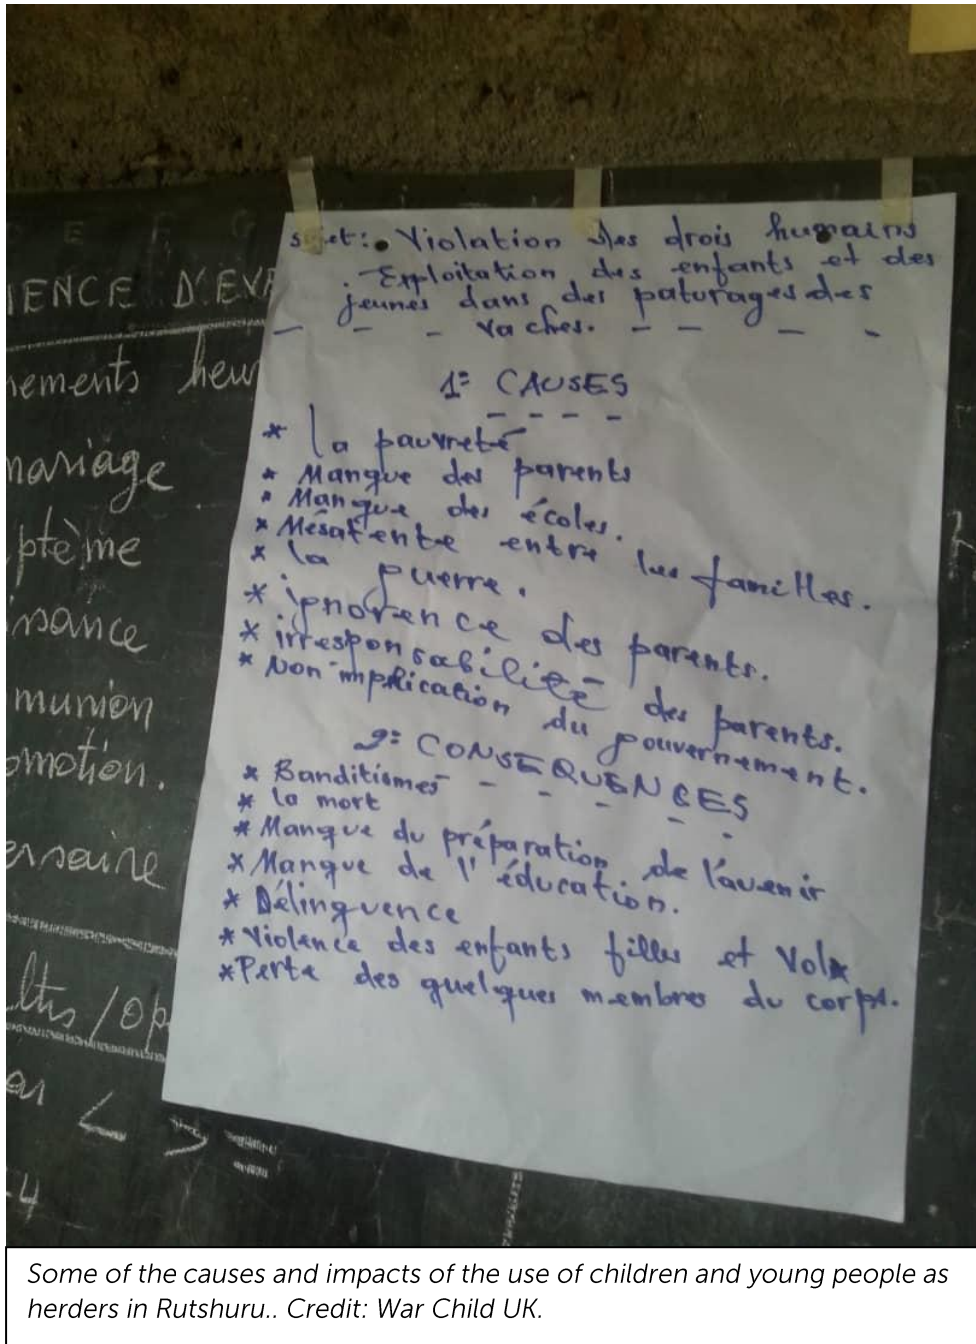 E F G
IENCE D'EVA
nements heur
mariage
ptème
isance
munion
omotion.
ersaire
ltés/Op
< > =
-4
sujet: • Violation des drois humains
. Exploitation des enfants et des
jeunes dans des paturages des
vaches.
1º CAUSES
* la pauvreté
* Manque des parents
* Manque des écoles.
* Mésatente entre les familles.
* la guerre.
* ignorence des parents.
* irresponsabilité des parents.
* Non implication du gouvernement.
2º CONSEQUENCES
* Banditismes
* la mort
* Manque du préparation de l'avenir
* Manque de l'éducation.
* Délinquence
* Violence des enfants filles et Vol*
* Perte des quelques membres du corps.
Some of the causes and impacts of the use of children and young people as
herders in Rutshuru.. Credit: War Child UK.